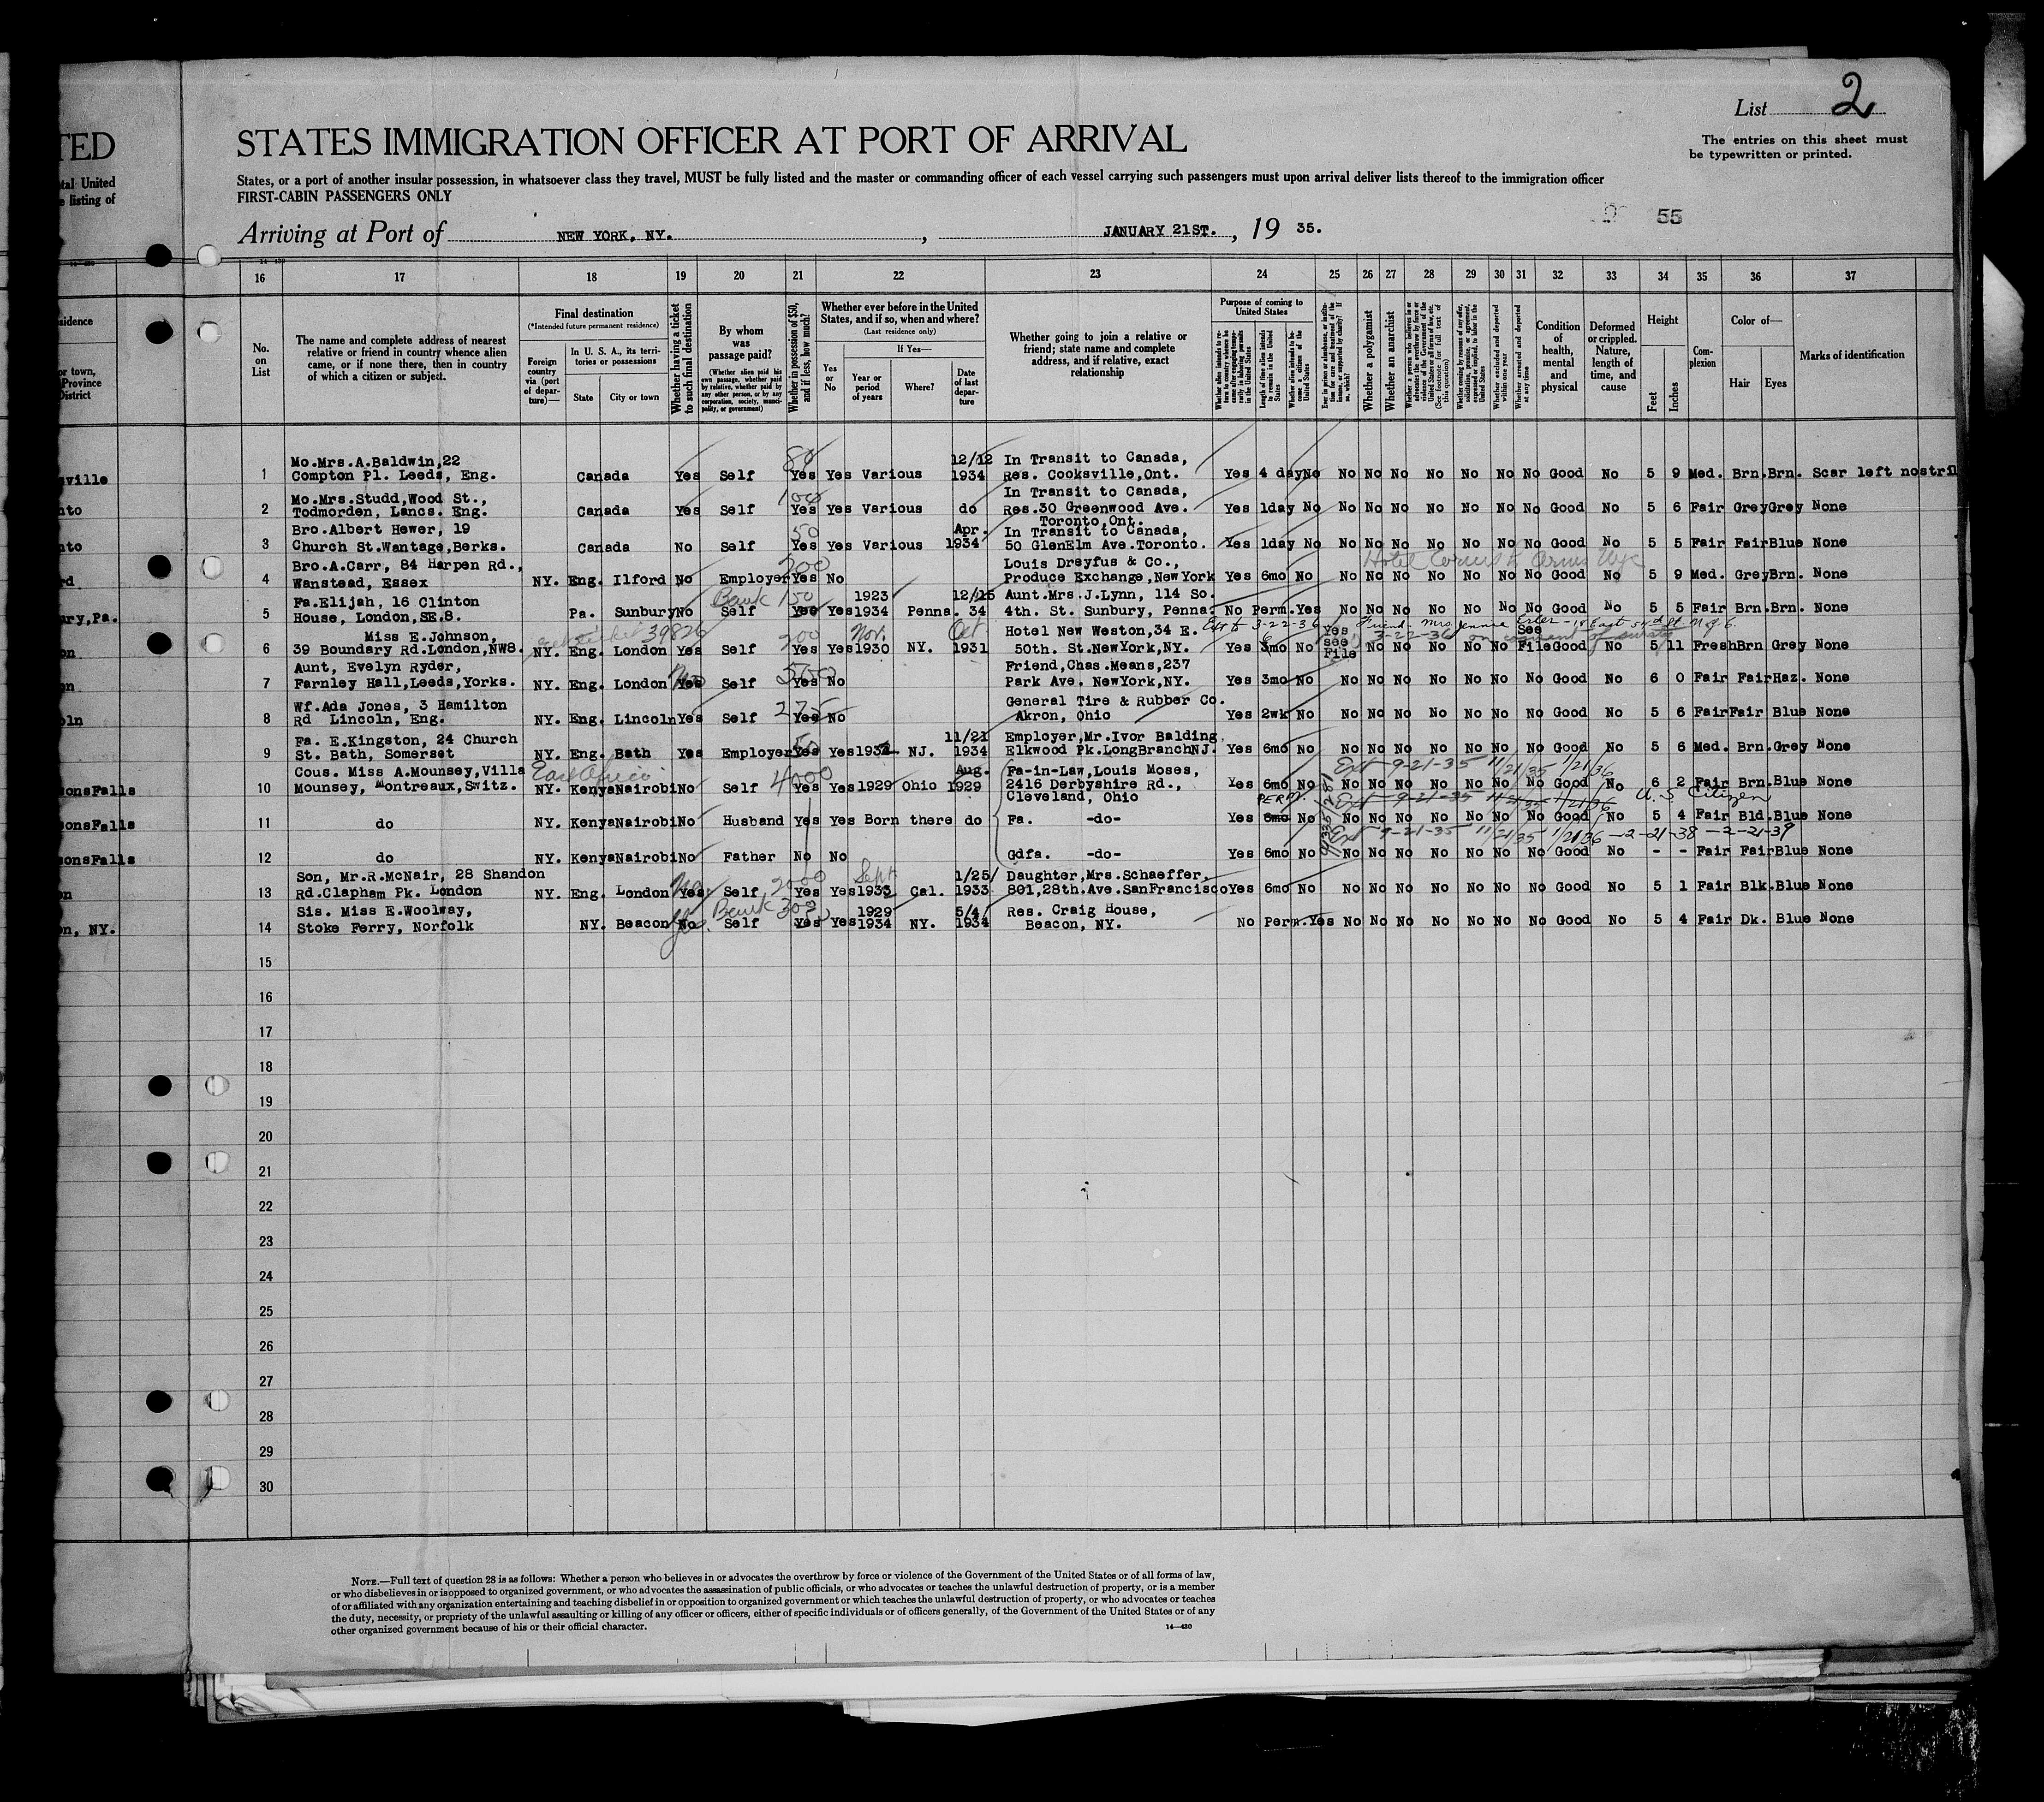 List 2
TED
STATES IMMIGRATION OFFICER AT PORT OF ARRIVAL
The entries on this sheet must
be typewritten or printed.
tal United
e listing of
States, or a port of another insular possession, in whatsoever class they travel, MUST be fully listed and the master or commanding officer of each vessel carrying such passengers must upon arrival deliver lists thereof to the immigration officer
FIRST-CABIN PASSENGERS ONLY
55
Arriving at Port of NEW YORK, NY. , JANUARY 21ST. , 19 35.
16 17 18 19 20 21 22 23 24 25 26 27 28 29 30 31 32 33 34 35 36 37
No. on List
The name and complete address of nearest relative or friend in country whence alien came, or if none there, then in country of which a citizen or subject.
Final destination
(*Intended future permanent residence)
Foreign country via (port of departure)—
In U. S. A., its territories or possessions
State
City or town
Whether having a ticket to such final destination
By whom was passage paid?
(Whether alien paid his own passage, whether paid by relative, whether paid by any other person, or by any corporation, society, municipality, or government)
Whether in possession of $50, and if less, how much?
Whether ever before in the United States, and if so, when and where?
(Last residence only)
Yes or No
If Yes—
Year or period of years
Where?
Date of last departure
Whether going to join a relative or friend; state name and complete address, and if relative, exact relationship
Purpose of coming to United States
Whether a polygamist
Whether an anarchist
Condition of health, mental and physical
Deformed or crippled. Nature, length of time, and cause
Height
Feet
Inches
Complexion
Color of—
Hair
Eyes
Marks of identification
ville 1 Mo.Mrs.A.Baldwin,22 Compton Pl. Leeds, Eng. Canada Yes Self Yes Yes Various 12/12 1934 In Transit to Canada, Res. Cooksville,Ont. Yes 4 day No No No No No No No No Good No 5 9 Med. Brn. Brn. Scar left nostril
nto 2 Mo.Mrs.Studd,Wood St., Todmorden, Lancs. Eng. Canada Yes Self 100 Yes Yes Various do In Transit to Canada, Res.30 Greenwood Ave. Toronto,Ont. Yes 1day No No No No No No No No Good No 5 6 Fair Grey Grey None
nto 3 Bro.Albert Hewer, 19 Church St.Wantage,Berks. Canada No Self 50 Yes Yes Various Apr. 1934 In Transit to Canada, 50 GlenElm Ave.Toronto. Yes 1day No No No No No No No No Good No 5 5 Fair Fair Blue None
rd 4 Bro.A.Carr, 84 Harpen Rd., Wanstead, Essex NY. Eng. Ilford No Employer 200 Yes No Louis Dreyfus & Co., Produce Exchange,NewYork Yes 6mo No No No No No No No No Good No 5 9 Med. Grey Brn. None
ury,Pa. 5 Fa.Elijah, 16 Clinton House, London,SE.8. Pa. Sunbury No Bank Self 150 Yes Yes 1923 1934 Penna. 12/15 34 Aunt.Mrs.J.Lynn, 114 So. 4th. St. Sunbury, Penna. No Perm. Yes No No No No No No No Good No 5 5 Fair Brn. Brn. None
on 6 Miss E.Johnson, 39 Boundary Rd.London,NW8. NY. Eng. London 39826 Yes Self 200 Yes Yes Nov. 1930 NY. Oct 1931 Hotel New Weston,34 E. 50th. St.NewYork,NY. Ext to 3-22-36 Yes 6 3mo No Yes see File No No No No No See File Good No 5 11 Fresh Brn Grey None
Friend Mrs Jennie 3-22-36 on
n 7 Aunt, Evelyn Ryder, Farnley Hall,Leeds,Yorks. NY. Eng. London Yes No Self 500 Yes No Friend,Chas.Means,237 Park Ave. NewYork,NY. Yes 3mo No No No No No No No No Good No 6 0 Fair Fair Haz. None
oln 8 Wf.Ada Jones, 3 Hamilton Rd Lincoln, Eng. NY. Eng. Lincoln Yes Self 275 Yes No General Tire & Rubber Co. Akron, Ohio Yes 2wk No No No No No No No No Good No 5 6 Fair Fair Blue None
9 Fa. E.Kingston, 24 Church St. Bath, Somerset NY. Eng. Bath Yes Employer 50 Yes Yes 1932 NJ. 11/21 1934 Employer,Mr.Ivor Balding, Elkwood Pk.LongBranchNJ. Yes 6mo No No No No No No No No Good No 5 6 Med. Brn. Grey None
onsFalls 10 Cous. Miss A.Mounsey,Villa Mounsey, Montreaux,Switz. East Africa NY. Kenya Nairobi No Self 4000 Yes Yes 1929 Ohio Aug. 1929 Fa-in-Law,Louis Moses, 2416 Derbyshire Rd., Cleveland, Ohio Yes 6mo No Ext 9-21-35 11/21/35 1/21/36 No No No No No No No Good No 6 2 Fair Brn. Blue None
onsFalls 11 do NY. Kenya Nairobi No Husband Yes Yes Born there do Fa. -do- Yes PERM. 6mo No Ext 9-21-35 11/21/35 1/21/36 U. S. Citizen No No No No No No No Good No 5 4 Fair Bld. Blue None
onsFalls 12 do NY. Kenya Nairobi No Father No No Gdfa. -do- Yes 6mo No Ext 9-21-35 11/21/35 1/21/36 — 2-21-38 — 2-21-39 No No No No No No No Good No - - Fair Fair Blue None
n 13 Son, Mr.R.McNair, 28 Shandon Rd.Clapham Pk. London NY. Eng. London Yes No Self 2000 Yes Yes Sept 1933 Cal. 1/25/ 1933 Daughter,Mrs.Schaeffer, 801,28th.Ave.SanFrancisco Yes 6mo No No No No No No No No Good No 5 1 Fair Blk. Blue None
n, NY. 14 Sis. Miss E.Woolway, Stoke Ferry, Norfolk NY. Beacon No Yes Bank Self 300 Yes Yes 1929 1934 NY. 5/4/ 1934 Res. Craig House, Beacon, NY. No Perm. Yes No No No No No No No Good No 5 4 Fair Dk. Blue None
15
16
17
18
19
20
21
22
23
24
25
26
27
28
29
30
NOTE.—Full text of question 28 is as follows: Whether a person who believes in or advocates the overthrow by force or violence of the Government of the United States or of all forms of law,
or who disbelieves in or is opposed to organized government, or who advocates the assassination of public officials, or who advocates or teaches the unlawful destruction of property, or is a member
of or affiliated with any organization entertaining and teaching disbelief in or opposition to organized government or which teaches the unlawful destruction of property, or who advocates or teaches
the duty, necessity, or propriety of the unlawful assaulting or killing of any officer or officers, either of specific individuals or of officers generally, of the Government of the United States or of any
other organized government because of his or their official character.
14—430